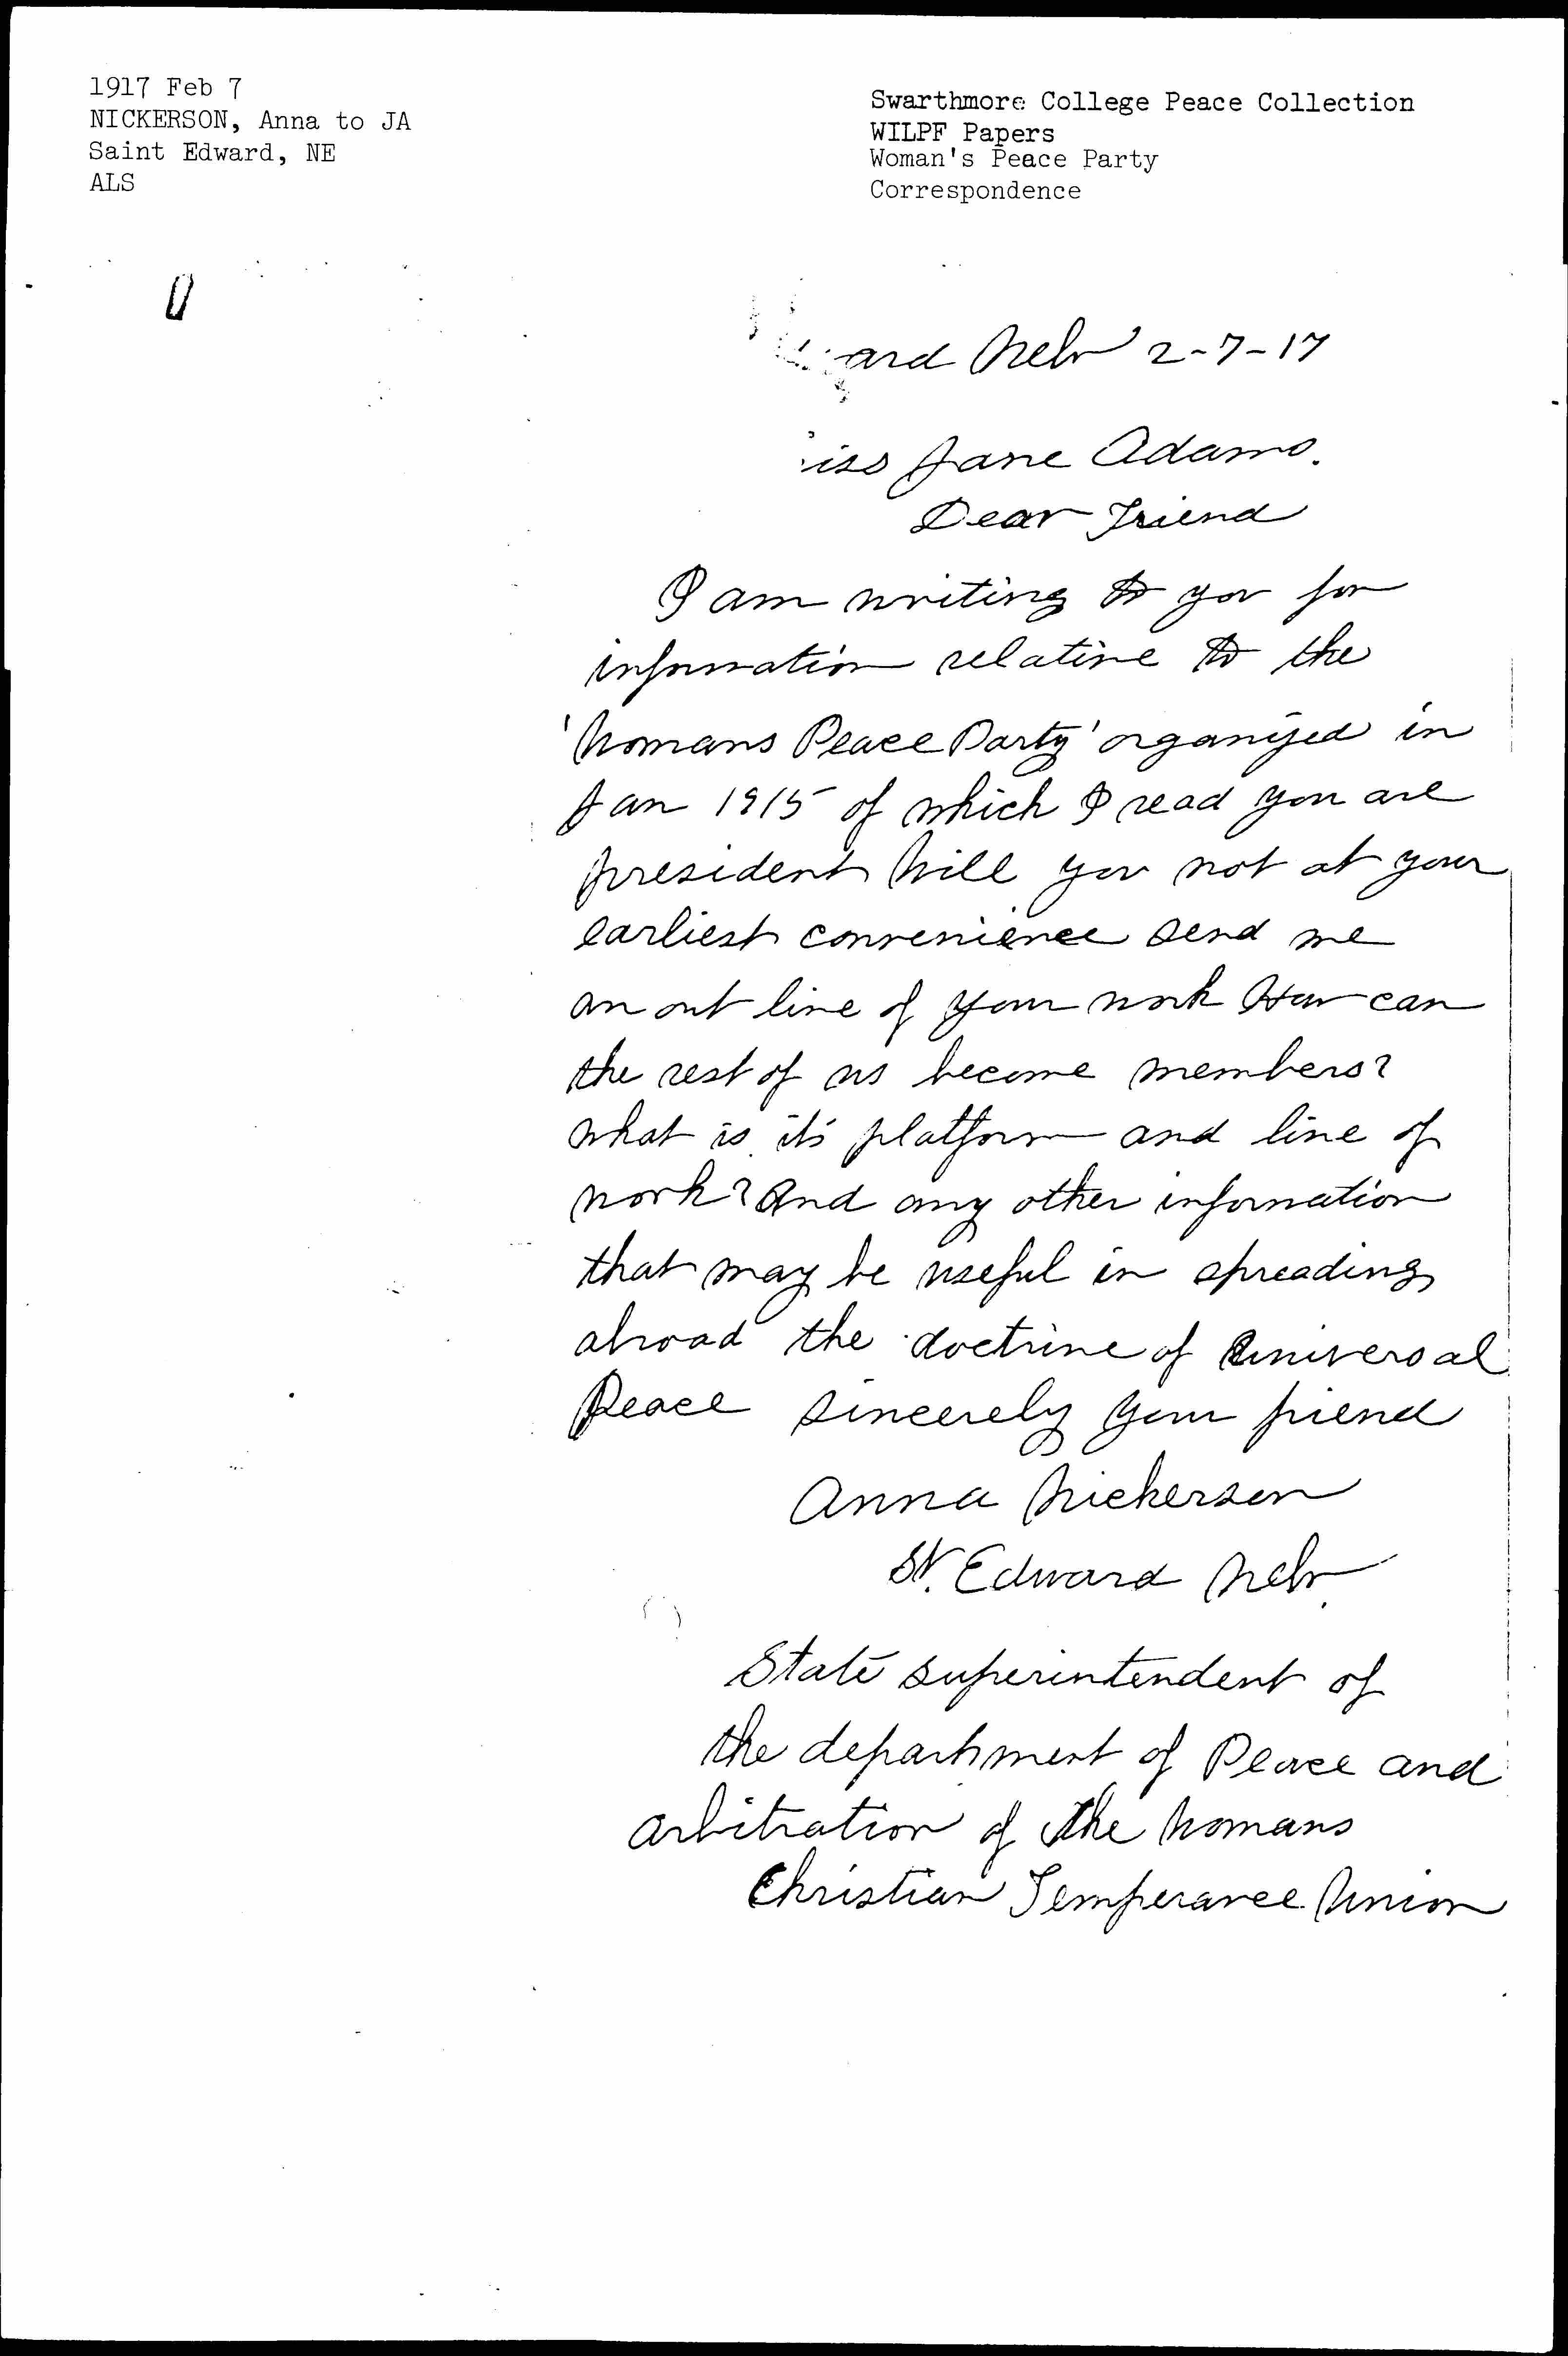 1917 Feb 7
NICKERSON, Anna to JA
Saint Edward, NE
ALS
Swarthmore College Peace Collection
WILPF Papers
Woman's Peace Party
Correspondence
ard Nebr 2-7-17
iss Jane Adams.
Dear Friend
I am writing to you for
information relative to the
'Womans Peace Party' organized in
Jan 1915 of which I read you are
president Will you not at your
earliest convenience send me
an out line of your work How can
the rest of us become members?
what is it's platform and line of
work? And any other information
that may be useful in spreading
abroad the doctrine of Universal
Peace sincerely your friend
Anna Nickerson
St. Edward Nebr.
State superintendent of
the department of Peace and
arbitration of the Womans
Christian Temperance Union